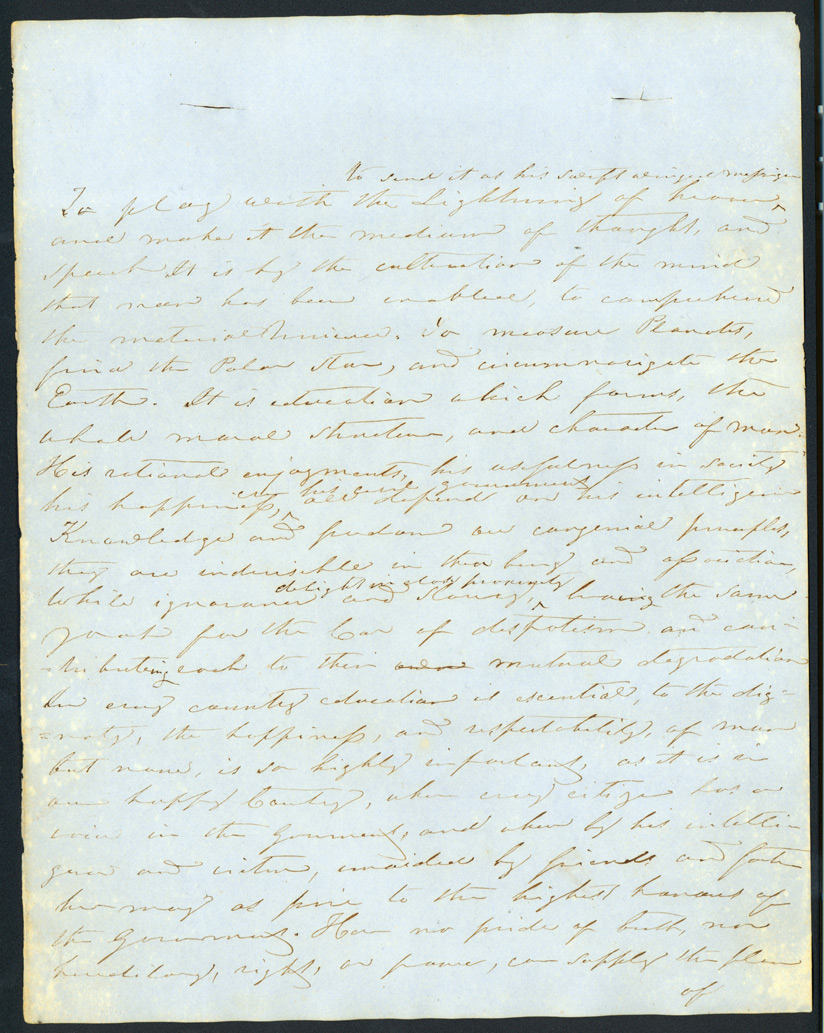 to send it as his swift winged messenger
To play with the Lightning of heaven,
and make it the medium of thought, and
speech It is by the cultivation of the mind
that man has been enabled, to comprehend
the material Universe. To measure Planets,
find the Polar Star, and circumnavigate the
Earth. It is education which forms, the
whole moral structure, and character of man.
His rational enjoyments, his usefulness in society
his civil government
his happiness, all depend on his intelligence
Knowledge and freedom are congenial principles,
they are indivisible in their being and association,
delight in close proximity
While ignorance and slavery, having the same
for the Car of despotism and con-
-tributing each to their mutual degradation
In every country education is escential, to the dig-
-nity, the happiness, and respectability, of man
but none, is so highly important, as it is in
our happy Country, where every citizen has a
voice in the Government, and where by his intelli-
gence and virtue, unaided by friends and fortune
he may as pire to the highest honours of
the Government. Here no pride of birth, nor
hereditary, right, or power, can supply the place
of